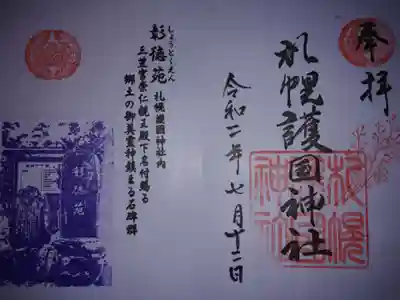 奉拝
札幌護国神社
札幌
護国
神社
令和二年七月十二日
しょうとくえん
彰徳苑 札幌護國神社内
三笠宮崇仁親王殿下名付賜る
郷土の御英霊神鎮まる石碑群
彰徳苑